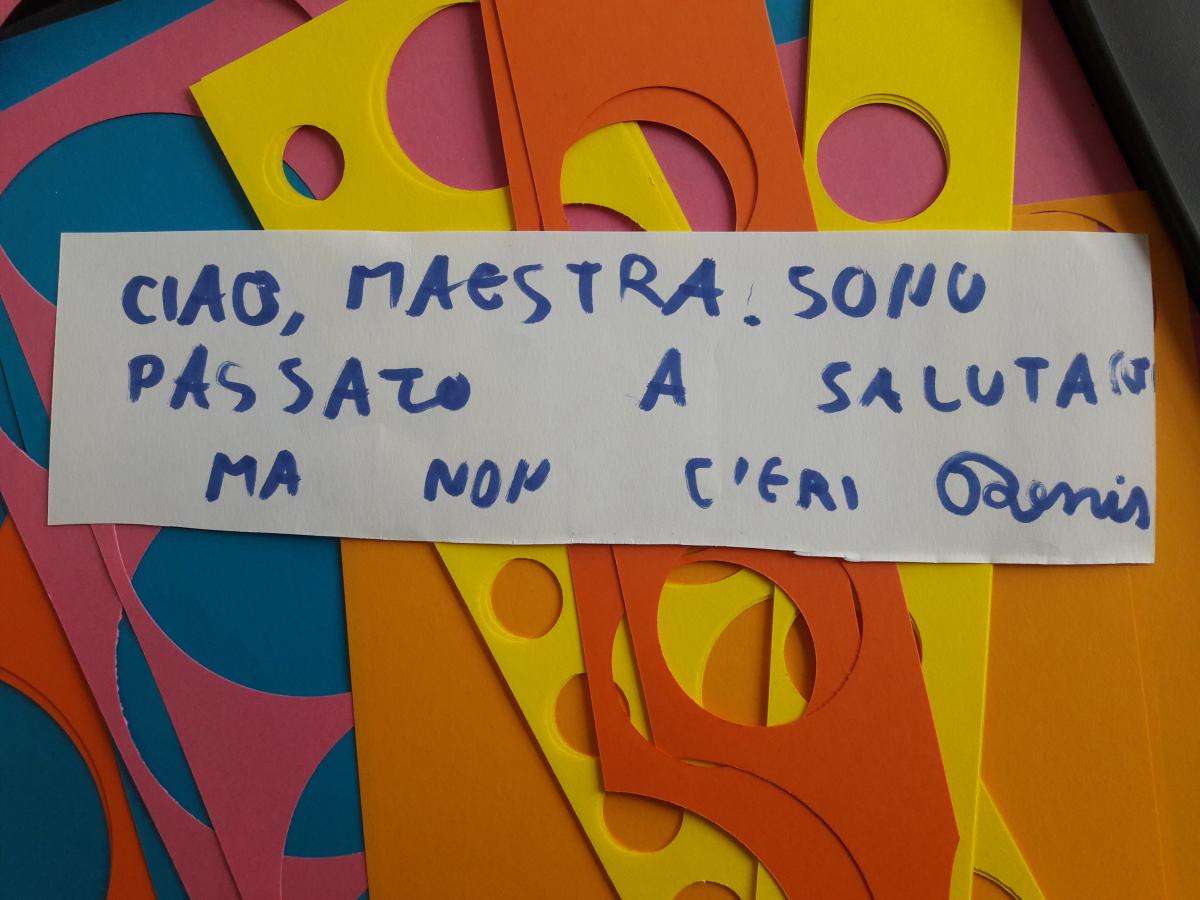 CIAO, MAESTRA! SONO
PASSATO A SALUTARTI
MA NON C'ERI Denis